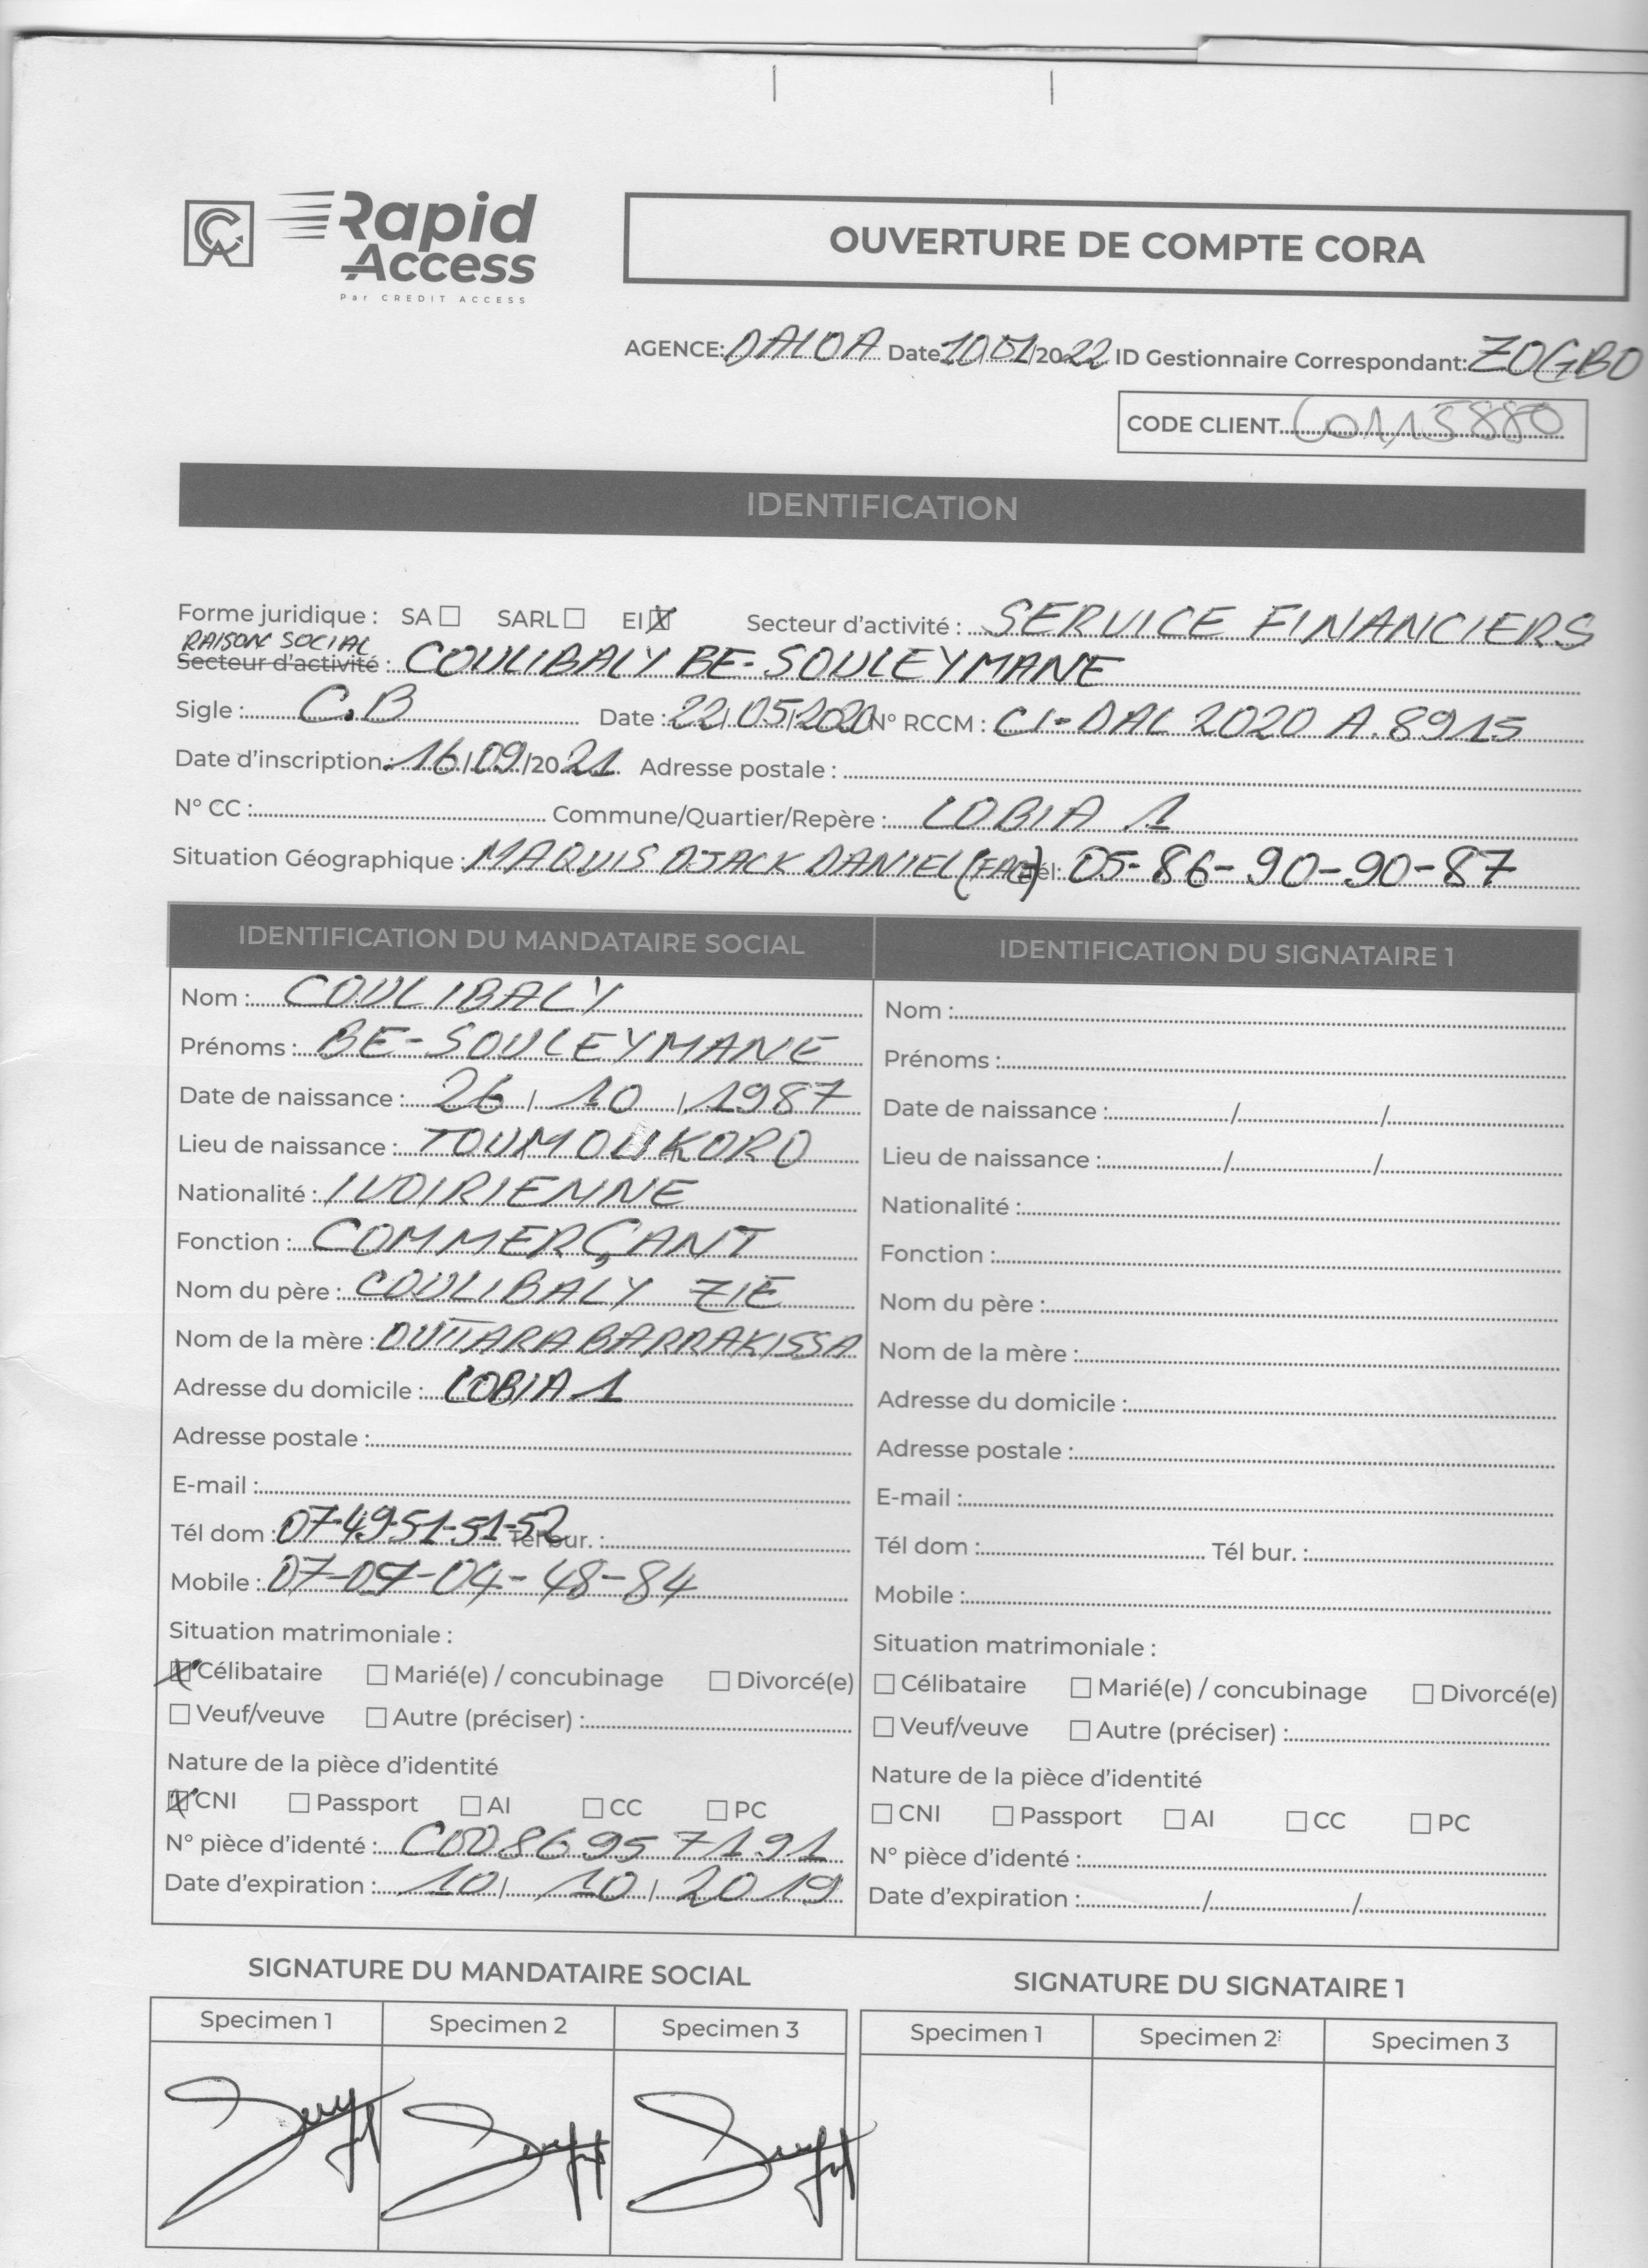 Rapid
Access
Par CREDIT ACCESS
OUVERTURE DE COMPTE CORA
AGENCE: DALOA Date 10/01/2022 ID Gestionnaire Correspondant: ZOGBO
CODE CLIENT C0115880
IDENTIFICATION
Forme juridique : SA ☐ SARL ☐ EI ☒ Secteur d'activité : SERVICE FINANCIERS
RAISON SOCIAL
Secteur d'activité : COULIBALY BE-SOULEYMANE
Sigle : C.B Date : 22/05/2020 N° RCCM : CI-DAL 2020 A.8915
Date d'inscription : 16/09/2021 Adresse postale :
N° CC : Commune/Quartier/Repère : LOBIA 1
Situation Géographique : MAQUIS DJACK DANIEL (FACE) Tél: 05-86-90-90-87
IDENTIFICATION DU MANDATAIRE SOCIAL
Nom : COULIBALY
Prénoms : BE-SOULEYMANE
Date de naissance : 26/10/1987
Lieu de naissance : TOUMOUKORO
Nationalité : IVOIRIENNE
Fonction : COMMERÇANT
Nom du père : COULIBALY ZIE
Nom de la mère : OUTTARA BARRAKISSA
Adresse du domicile : LOBIA 1
Adresse postale :
E-mail :
Tél dom : 07-49-51-51-52 Tél bur. :
Mobile : 07-07-04-48-84
Situation matrimoniale :
☒ Célibataire ☐ Marié(e) / concubinage ☐ Divorcé(e)
☐ Veuf/veuve ☐ Autre (préciser) :
Nature de la pièce d'identité
☒ CNI ☐ Passport ☐ AI ☐ CC ☐ PC
N° pièce d'identé : C0086957191
Date d'expiration : 10/10/2019
IDENTIFICATION DU SIGNATAIRE 1
Nom :
Prénoms :
Date de naissance : / /
Lieu de naissance : / /
Nationalité :
Fonction :
Nom du père :
Nom de la mère :
Adresse du domicile :
Adresse postale :
E-mail :
Tél dom : Tél bur. :
Mobile :
Situation matrimoniale :
☐ Célibataire ☐ Marié(e) / concubinage ☐ Divorcé(e)
☐ Veuf/veuve ☐ Autre (préciser) :
Nature de la pièce d'identité
☐ CNI ☐ Passport ☐ AI ☐ CC ☐ PC
N° pièce d'identé :
Date d'expiration : / /
SIGNATURE DU MANDATAIRE SOCIAL
Specimen 1 Specimen 2 Specimen 3
SIGNATURE DU SIGNATAIRE 1
Specimen 1 Specimen 2 Specimen 3